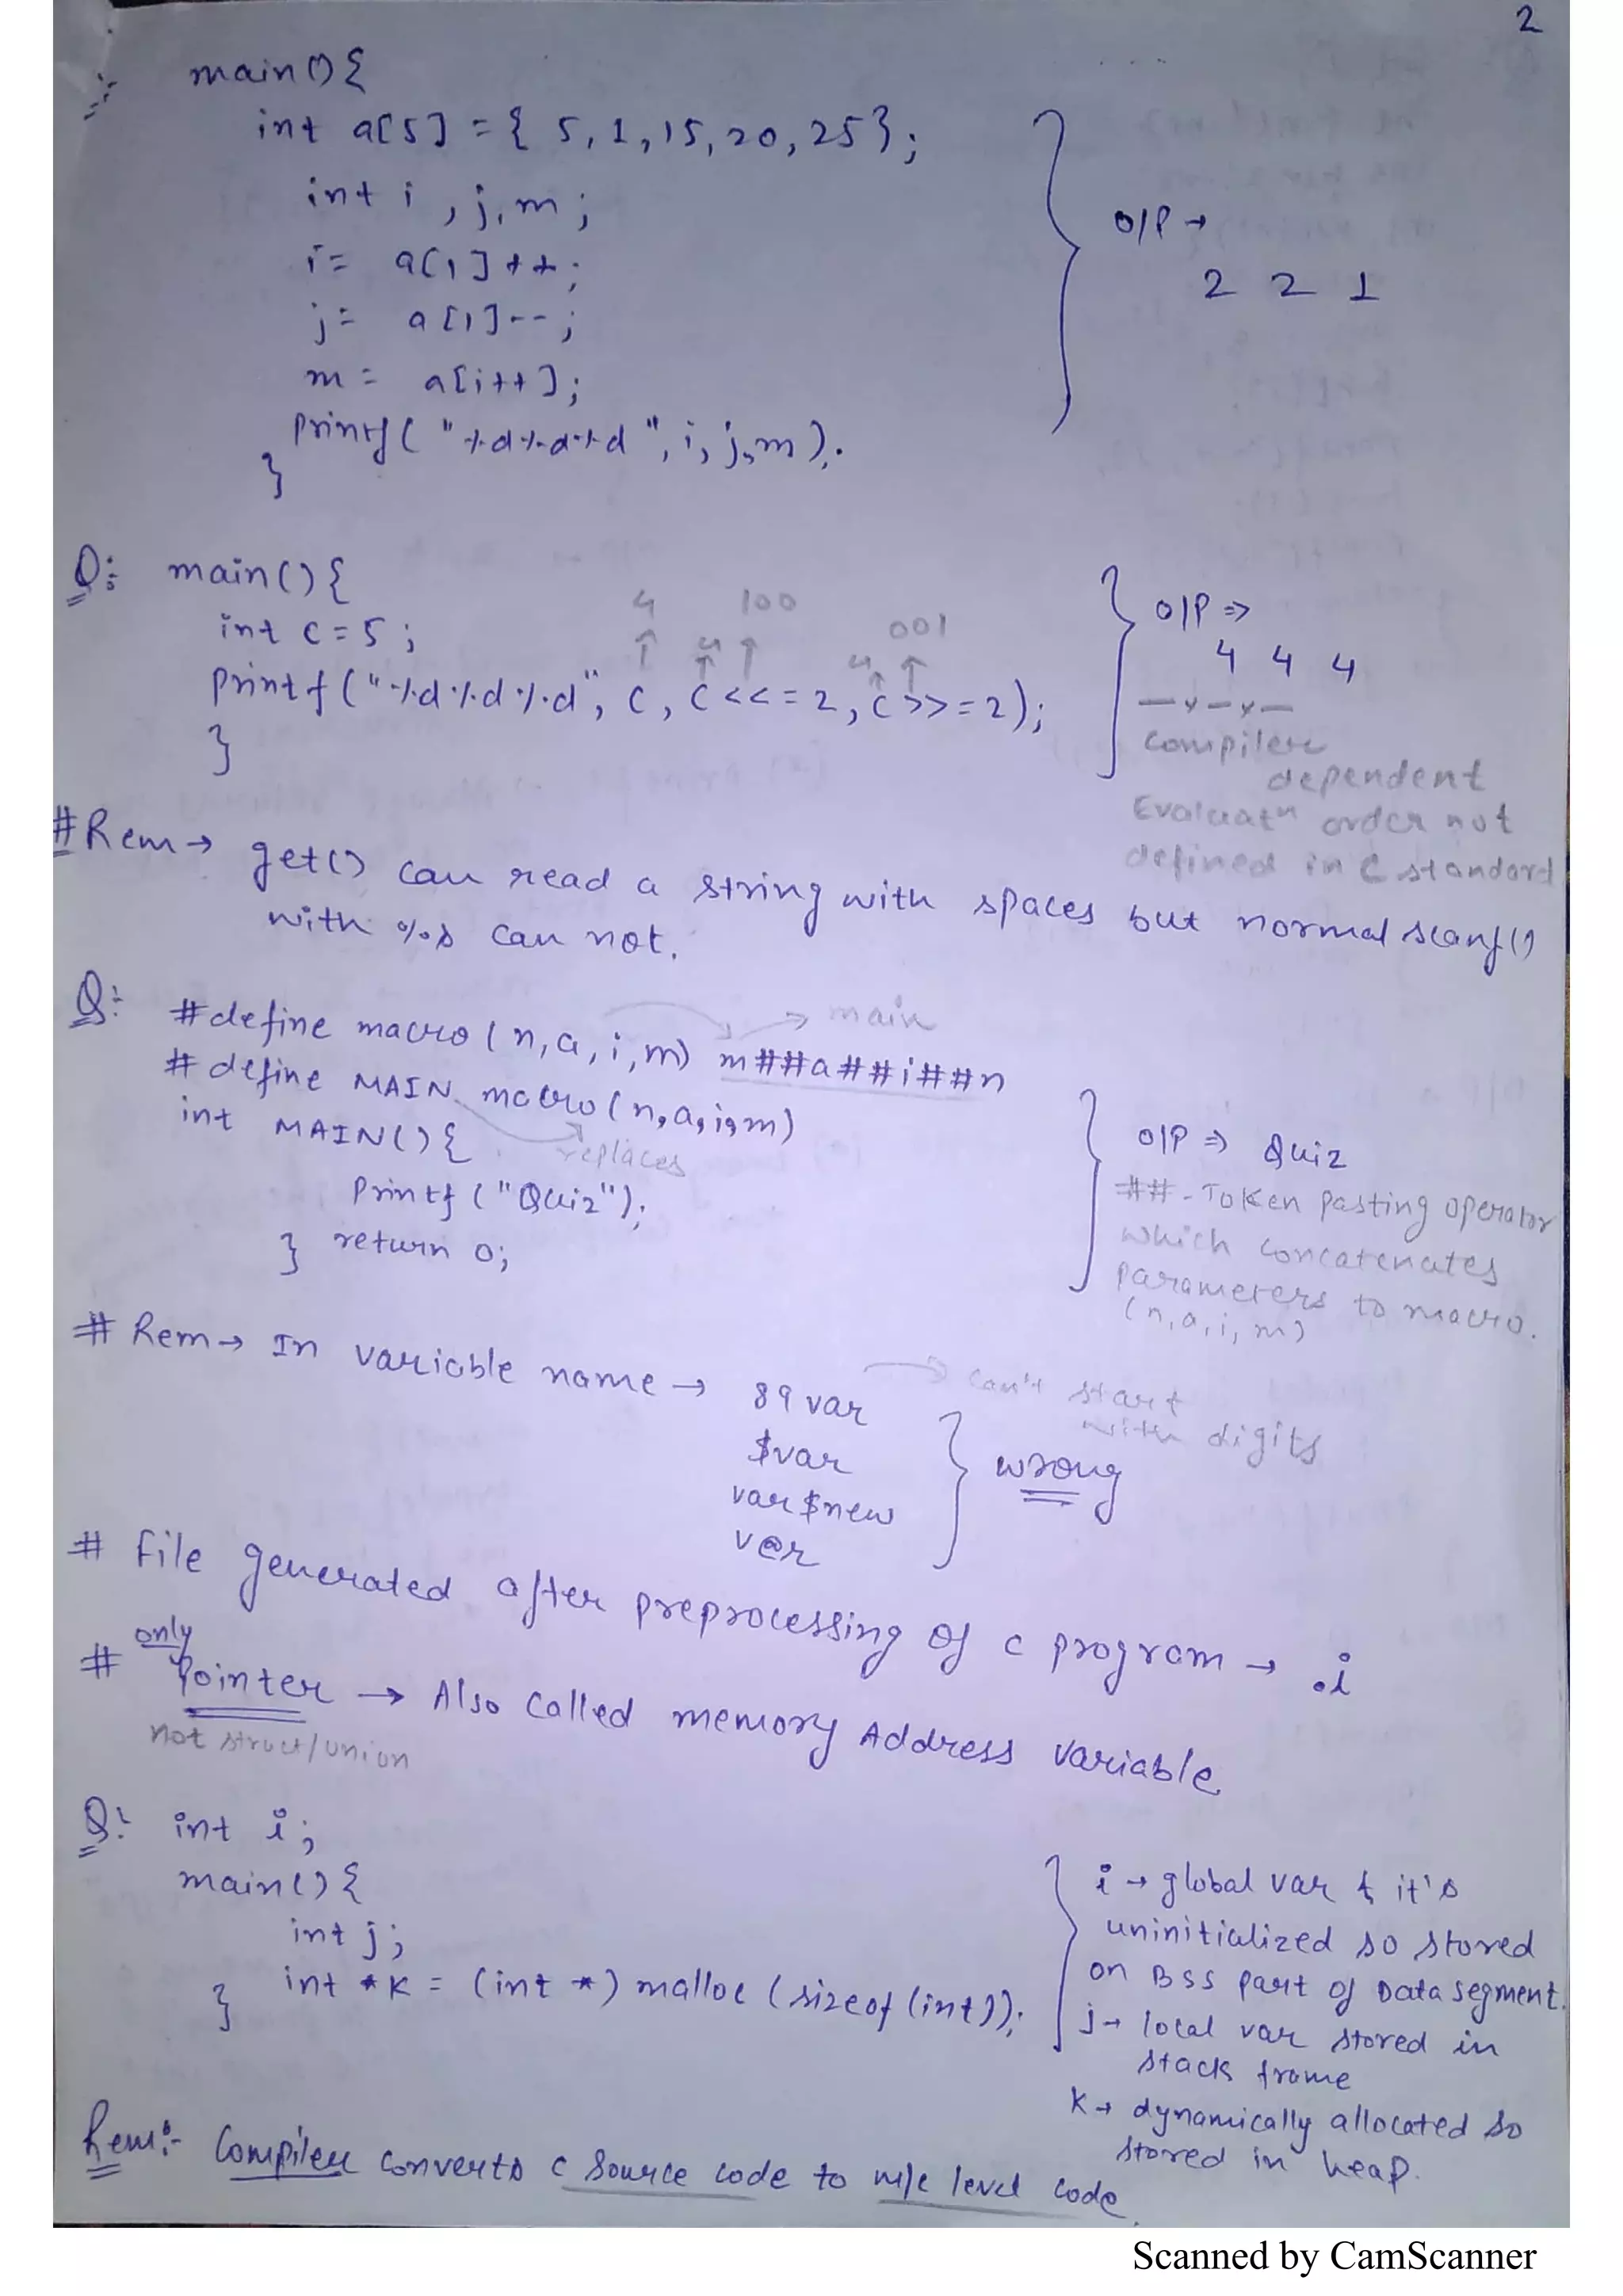 2
main(){
int a[5] = { 5, 1, 15, 20, 25};
int i , j, m ;
i= a[1]++;
j= a[1]--;
m= a[i++];
printf( "%d%d%d", i, j, m );
}
O/P →
2 2 1
Q: main(){
int c=5;
4 100 001
4 4
printf("%d%d%d", c, c<<=2, c>>=2);
}
O/P ⇒
4 4 4
—x—x—
Compiler
dependent
Evaluatn order not
defined in C standard
#Rem → get() can read a string with spaces but normal scanf()
with %s can not.
Q: #define macro(n,a,i,m) m##a##i##n
→ main
#define MAIN macro(n,a,i,m)
replaces
int MAIN(){
printf("Quiz");
return 0;
}
O/P ⇒ Quiz
## - Token pasting operator
which concatenates
parameters to macro.
(n,a,i,m)
# Rem → In variable name → 89var → can't start
with digits
$var
var$new
v@r
} wrong
# File generated after preprocessing of c program → .i
# only
Pointer → Also called memory Address variable
not struct/union
Q: int i;
main(){
int j;
int *k = (int *) malloc (sizeof (int));
}
i → global var & it's
uninitialized so stored
on BSS part of Data segment.
j → local var stored in
stack frame
k → dynamically allocated so
stored in heap.
Rem:- Compiler converts c source code to m/c level code.
Scanned by CamScanner